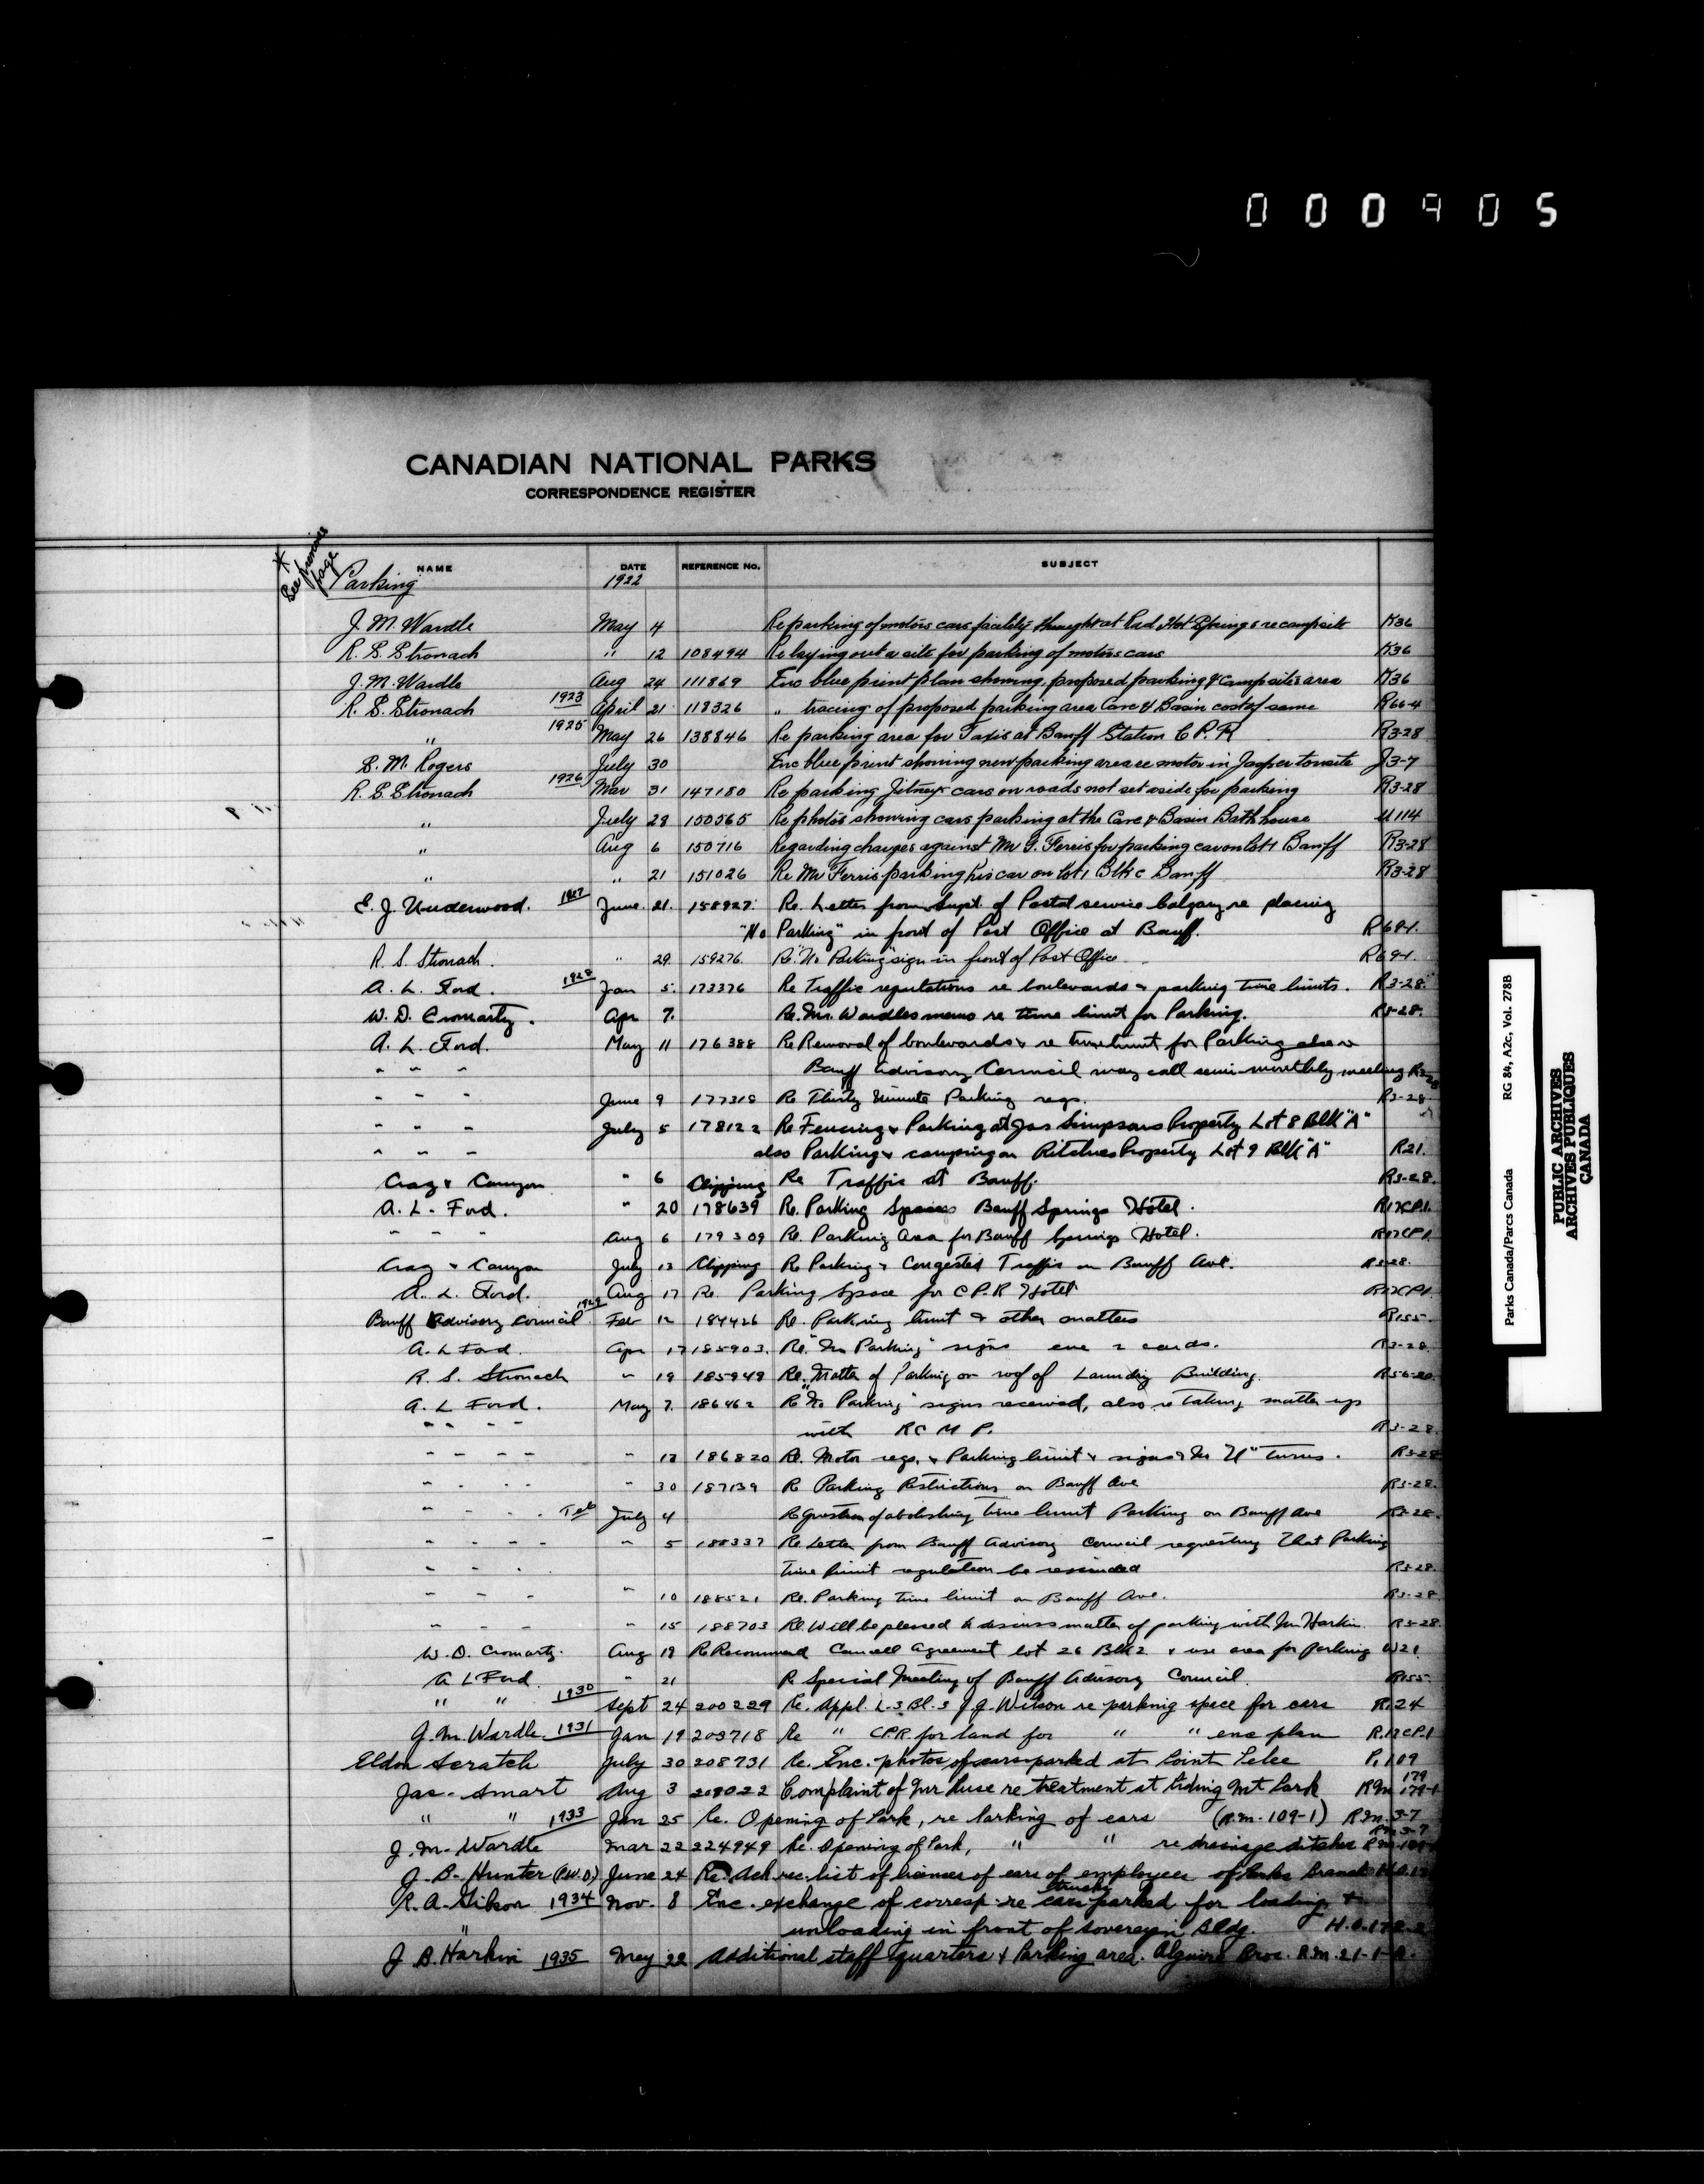 000905
CANADIAN NATIONAL PARKS
CORRESPONDENCE REGISTER
* See previous page
NAME DATE REFERENCE No. SUBJECT
Parking 1922
J. M. Wardle May 4 Re parking of motors cars facility thought at Rad Hot Springs re campsite K36
R. S. Stronach " 12 108494 Re laying out a site for parking of motors cars K36
J. M. Wardle Aug 24 111869 Enc blue print plan showing proposed parking & campsites area K36
R. S. Stronach 1923 April 21 118326 " tracing of proposed parking area Cave & Basin cost of same R66-4
" 1925 May 26 138846 Re parking area for Taxis at Banff Station C P. R R3-28
S. M. Rogers July 30 Enc blue print showing new parking area re motor in Jasper tonsite J3-7
R. S. Stronach 1926 Mar 31 147180 Re parking Jitneys cars on roads not set aside for parking R3-28
" July 28 150565 Re photos showing cars parking at the Cave & Basin Bath house U114
" Aug 6 150716 Regarding charges against Mr G. Ferris for parking car on lot 1 Banff R3-28
" " 21 151026 Re Mr Ferris parking his car on lot 1 Blk c Banff R3-28
E. J. Underwood. 1927 June 21. 158927. Re. Letter from Supt. of Postal service Calgary re placing
"No Parking" in front of Post Office at Banff. R69-1.
R. S. Stronach. " 29. 159276. Re. "No Parking" sign in front of Post Office R69-1.
A. L. Ford. 1928 Jan 5. 173376 Re Traffic regulations re boulevards & parking time limits. R3-28.
W. D. Cromarty. Apr 7. Re. Mr. Wardles memo re time limit for Parking. R3-28.
A. L. Ford. May 11 176388 Re Removal of boulevards & re time limit for Parking also
" " " Banff Advisory Council may call semi-monthly meeting R3-28
" " " June 9 177318 Re Thirty Minute Parking regs. R3-28.
" " " July 5 178122 Re Fencing & Parking at Jas Simpsons Property Lot 8 Blk "A"
" " " also Parking & camping on Ritchies Property Lot 9 Blk "A" R21.
Crag & Canyon " 6 Clipping Re Traffic at Banff. R3-28.
A. L. Ford. " 20 178639 Re. Parking Spaces Banff Springs Hotel. R17CP.1.
" " " Aug 6 179309 Re. Parking Area for Banff Springs Hotel. R17CP1.
Crag & Canyon July 13 Clipping Re Parking & Congested Traffic on Banff Ave. R3-28.
A. L. Ford. Aug 17 Re. Parking Space for C P. R Hotel R17CP1.
Banff Advisory Council. 1929 Feb 12 184426 Re. Parking limit & other matters R155.
A. L Ford. Apr 17 185903. Re. "No Parking" signs enc 2 cards. R3-28.
R. S. Stronach " 19 185949 Re. Matter of Parking on roof of Laundry Building.
A. L Ford. May 7. 186462 Re "No Parking" signs received, also re taking matter up
" " " " with R C M P. R3-28.
" " " " " 13 186820 Re. Motor regs. & Parking limit & signs & No "U" turns. R3-28
" " " " " 30 187139 Re Parking Restrictions on Banff Ave R3-28.
" " " " Tel July 4 Re question of abolishing time limit Parking on Banff Ave R3-28.
" " " " " 5 188337 Re Letter from Banff Advisory Council requesting that Parking
" " " time limit regulation be rescinded R3-28.
" " " " 10 188521 Re. Parking time limit on Banff Ave. R3-28.
" " " " 15 188703 Re. Will be pleased to discuss matter of parking with Mr Harkin R3-28.
W. D. Cromarty. Aug 19 Re Recommend Cancell Agreement lot 26 Blk 2 & use area for parking W21.
A L Ford. " 21 Re Special Meeting of Banff Advisory Council. R155.
" " 1930 Sept 24 200229 Re. Appl. L.3 Bl.3 J. G. Wilson re parking space for cars R.24
J. M. Wardle. 1931 Jan 19 203718 Re " C.P.R. for land for " " enc plan R.17CP.1
Eldon Scratch July 30 208731 Re. Enc. photos of cars parked at Point Pelee P.109
Jas. Smart Aug 3 Complaint of Mr re treatment at Riding Mt Park R.M. 179-1
" " 1933 Jan 25 Re. Opening of Park, re Parking of cars (R.M.-109-1) R.M. 3-7
J. M. Wardle Mar 22 224949 Re. Opening of Park, " " re drainage ditches
J. B. Hunter (P.W.D) June 24 Re. Ack. rec. list of licenses of cars of employees of Parks Branch
R. A. Gibson 1934 Nov. 8 Enc. exchange of corresp. re trucks cars parked for loading &
" unloading in front of Sovereign Bldg.
J. B. Harkin 1935 May 22 Additional staff quarters & Parking area. Bros. R.M. 21-1-
Parks Canada/Parcs Canada RG 84, A2c, Vol. 278B
PUBLIC ARCHIVES
ARCHIVES PUBLIQUES
CANADA